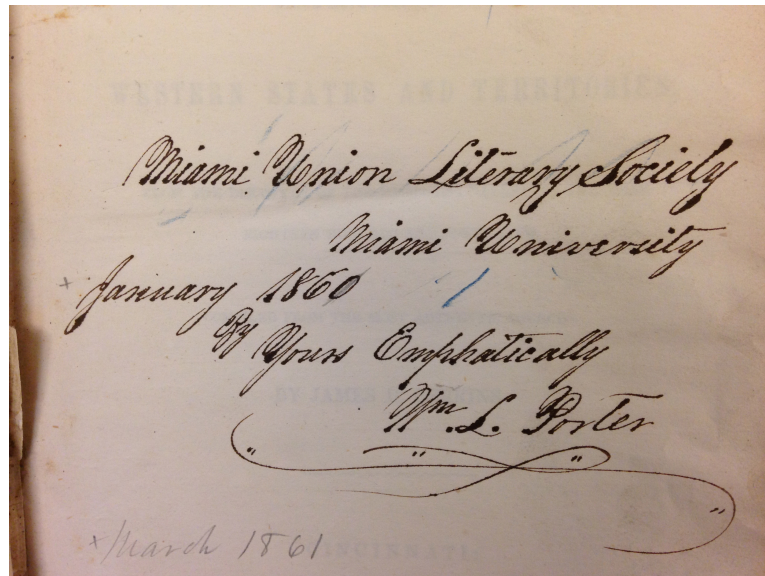 WESTERN STATES AND TERRITORIES
Miami Union Literary Society
Miami University
+ January 1860
By
Yours Emphatically
BY JAMES
Wm. L. Porter
+ March 1861
CINCINNATI